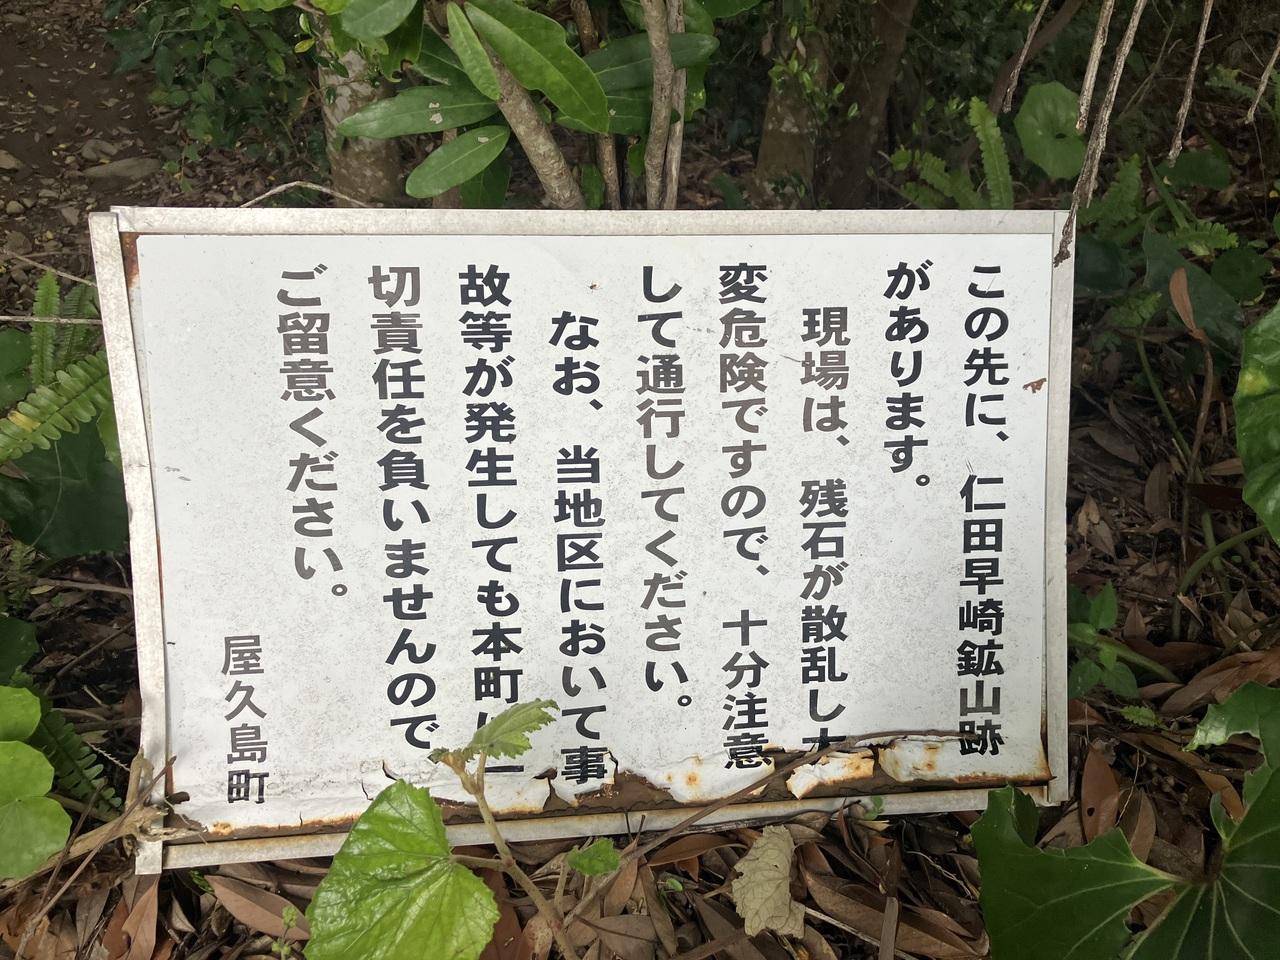 この先に、仁田早崎鉱山跡
があります。
現場は、残石が散乱し大
変危険ですので、十分注意
して通行してください。
なお、当地区において事
故等が発生しても本町は一
切責任を負いませんので
ご留意ください。
屋久島町